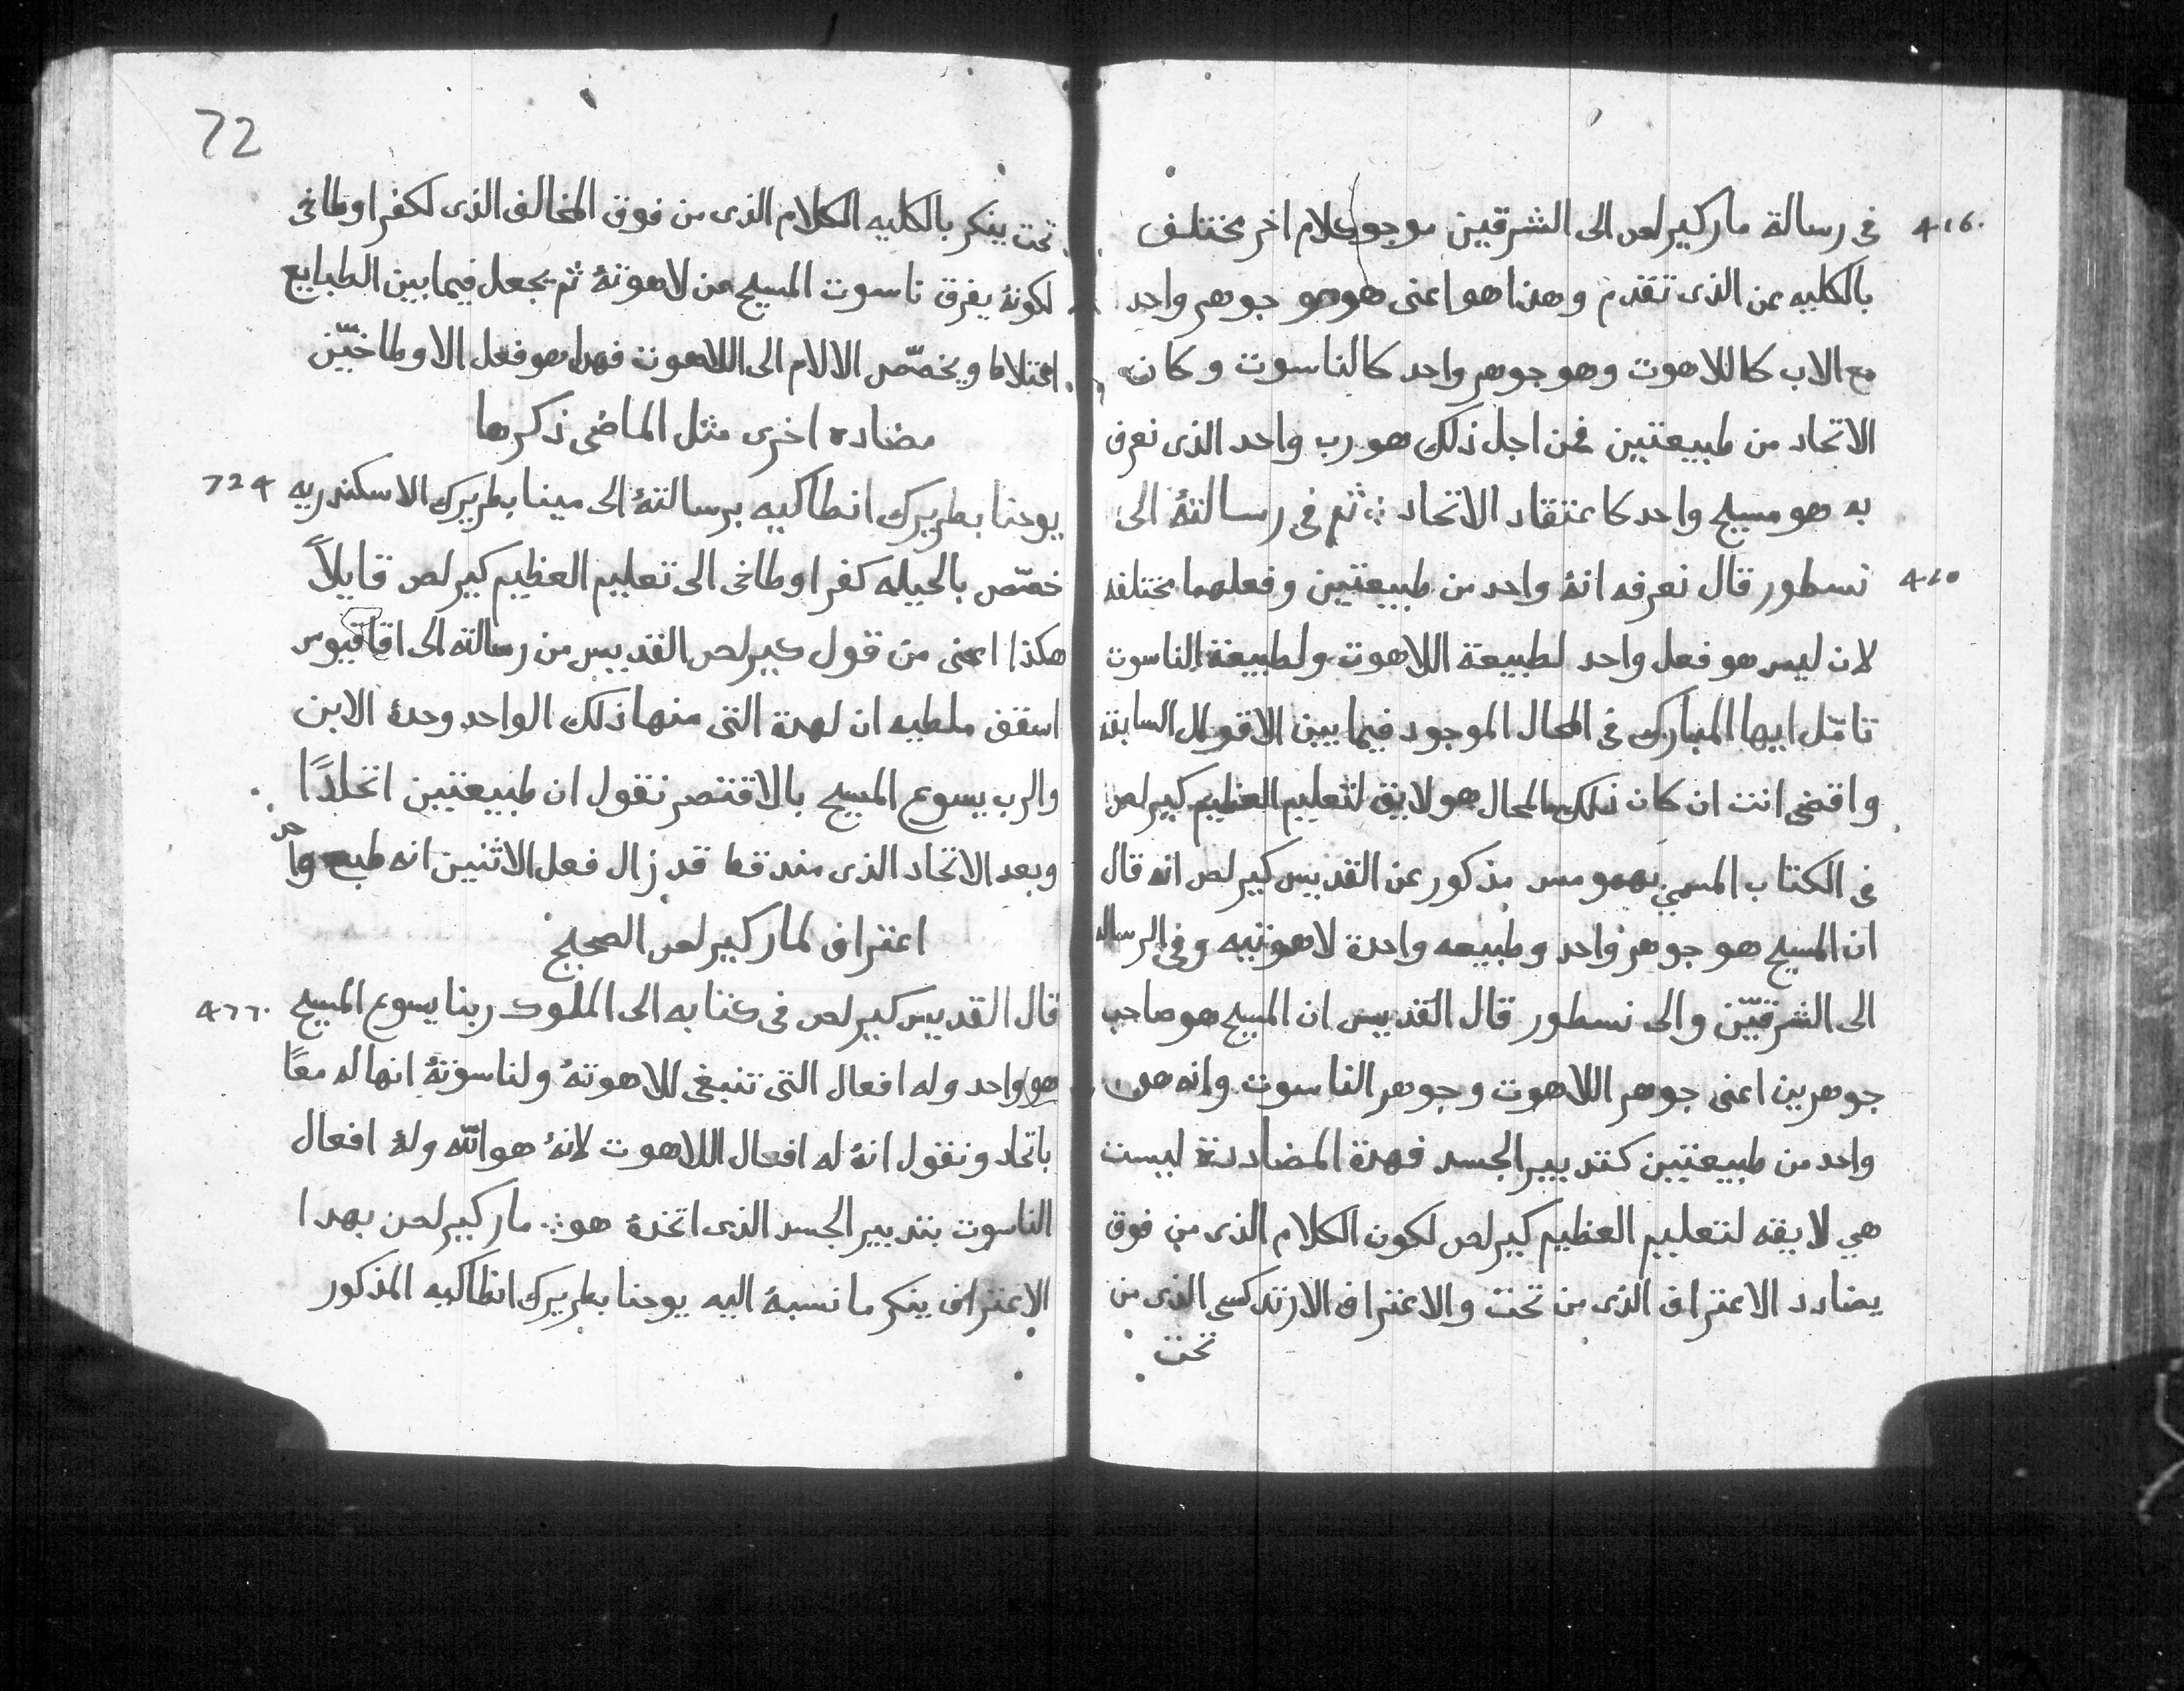 416.
فى رسالة ماركيرلص الى الشرقيين موجود كلام اخر مختلف
بالكليه عن الذى تقدم وهذا هو اعنى هوهو جوهر واحد
مع الاب كاللاهوت وهو جوهر واحد كالناسوت وكان
الاتحاد من طبيعتين فمن اجل ذلك هو رب واحد الذى نعرف
به هو مسيح واحد كاعتقاد الاتحاد ∴ ثم فى رسالتهُ الى
نسطور قال نعرفه انهُ واحد من طبيعتين وفعلهما مختلفه
لان ليس هو فعل واحد لطبيعة اللاهوت ولطبيعة الناسوت
تامّل ايها المبارك فى المحال الموجود فيما بين الاقوال السابقه
واقضى انت ان كان ذلك المحال هو لايق لتعليم العظيم كيرلص
فى الكتاب المسمي مذكور عن القديس كيرلص انه قال
ان المسيح هو جوهر واحد وطبيعه واحدة لاهوتيه وفى الرساله
الى الشرقيّن والى نسطور قال القديس ان المسيح هو صاحب
جوهرين اعنى جوهر اللاهوت وجوهر الناسوت وانه هو
واحد من طبيعتين كتدبير الجسد فهدة المضاددة ليست
هي لايقه لتعليم العظيم كيرلص لكون الكلام الذى من فوق
يضادد الاعتراف الذى من تحت والاعتراف الارتدكسى الذى من
تحت
72
تحت ينكر بالكليه الكلام الذى من فوق المخالف الذى لكفر اوطاخى
لكونهُ يفرق ناسوت المسيح عن لاهوتهُ ثم يجعل فيما بين الطبايع
اختلاط ويخصّص الالام الى اللاهوت فهدا هو فعل الاوطاخيّن
مضاده اخرى مثل الماضى ذكرها
724
يوحنا بطريرك انطاكيه برسالتهُ الى مينا بطريرك الاسكندريه
خصّص بالحيله كفر اوطاخى الى تعليم العظيم كيرلص قايلاً
هكذا اعنى من قول كيرلص القديس من رسالته الى اقاقيوس
اسقف ملطيه ان لهدة التى منها ذلك الواحد وحدهُ الابن
والرب يسوع المسيح بالاقتصر نقول ان طبيعتين اتحادًا
وبعد الاتحاد الذى مند قط قد زال فعل الاثنين انه طبع واحد
اعتراف لماركيرلص الصحيح
قال القديس كيرلص فى كتابه الى الملوك ربنا يسوع المسيح
هو واحد وله افعال التى تنبغى للاهوتهُ ولناسوتهُ انها له معًا
باتحاد ونقول انهُ له افعال اللاهوت لانهُ هو الله ولهُ افعال
الناسوت بتدبير الجسد الذى اتخدهُ هو ∴ ماركيرلص بهدا
الاعتراف ينكر ما نسبهُ اليه يوحنا بطريرك انطاكيه المذكور